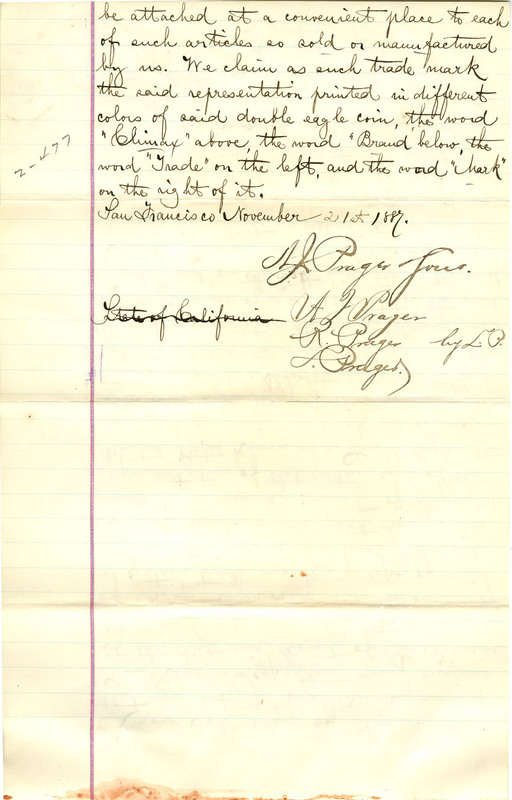 be attached at a convenient place to each
of such articles so sold or manufactured
by us. We claim as such trade mark
the said representation printed in different
colors of said double eagle coin, the word
"Climax" above, the word "Brand" below, the
word "Trade" on the left, and the word "Mark"
on the right of it.
2-477
San Francisco November 21st 1887.
A J Prager Sons.
State of California
A J Prager
R. Prager by L. P.
L. Prager